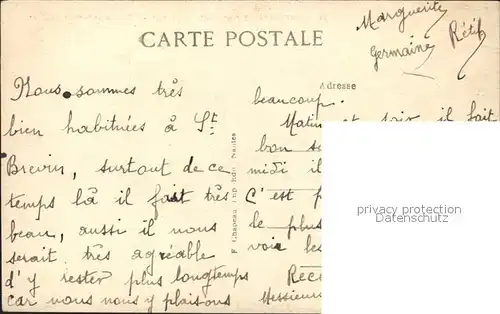 Marguerite
Germaine Rétif
CARTE POSTALE
Adresse
Nous sommes très
bien habituées à St
Brevin, surtout de ce
temps là il fait très
beau, aussi il nous
serait très agréable
d'y rester plus longtemps
car nous nous y plaisons
F. Chapeau, Imp. Edit., Nantes
beaucoup.
Matin et soir il fait
bon
midi il
C'est
le plus
voir les
Messieurs
privacy protection
Datenschutz